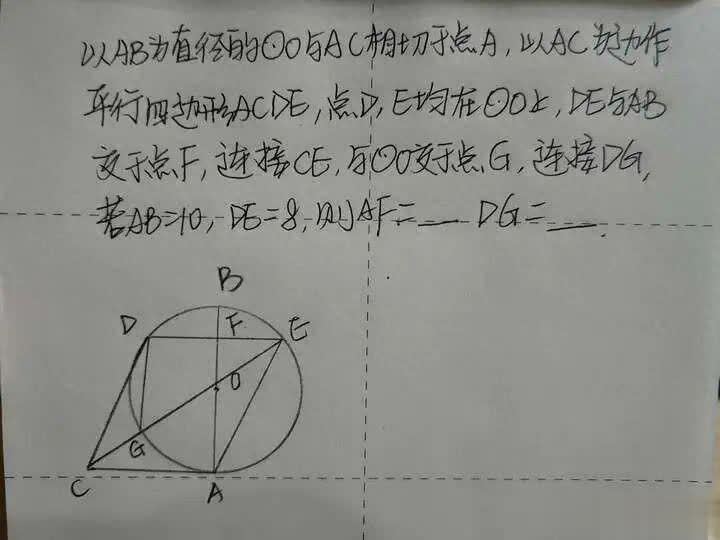 以AB为直径的⊙O与AC相切于点A,以AC为边作
平行四边形ACDE,点D,E均在⊙O上,DE与AB
交于点F,连接CE,与⊙O交于点G,连接DG,
若AB=10,DE=8,则AF=__ DG=__.
B
D F E
O
G
C A